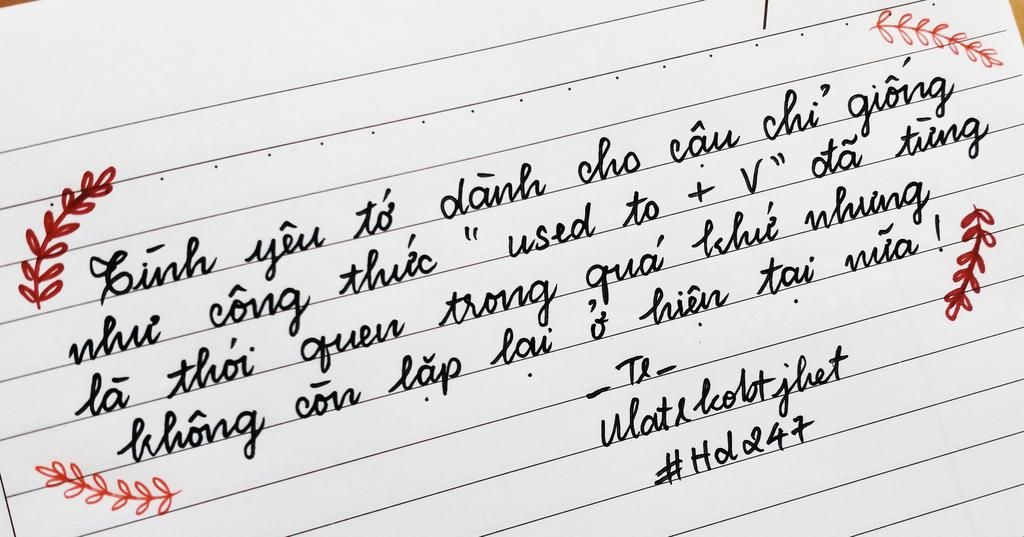 Tình yêu tớ dành cho cậu chỉ giống
như công thức " used to + V" đã từng
là thói quen trong quá khứ nhưng
không còn lặp lại ở hiện tại nữa !
#Hd247